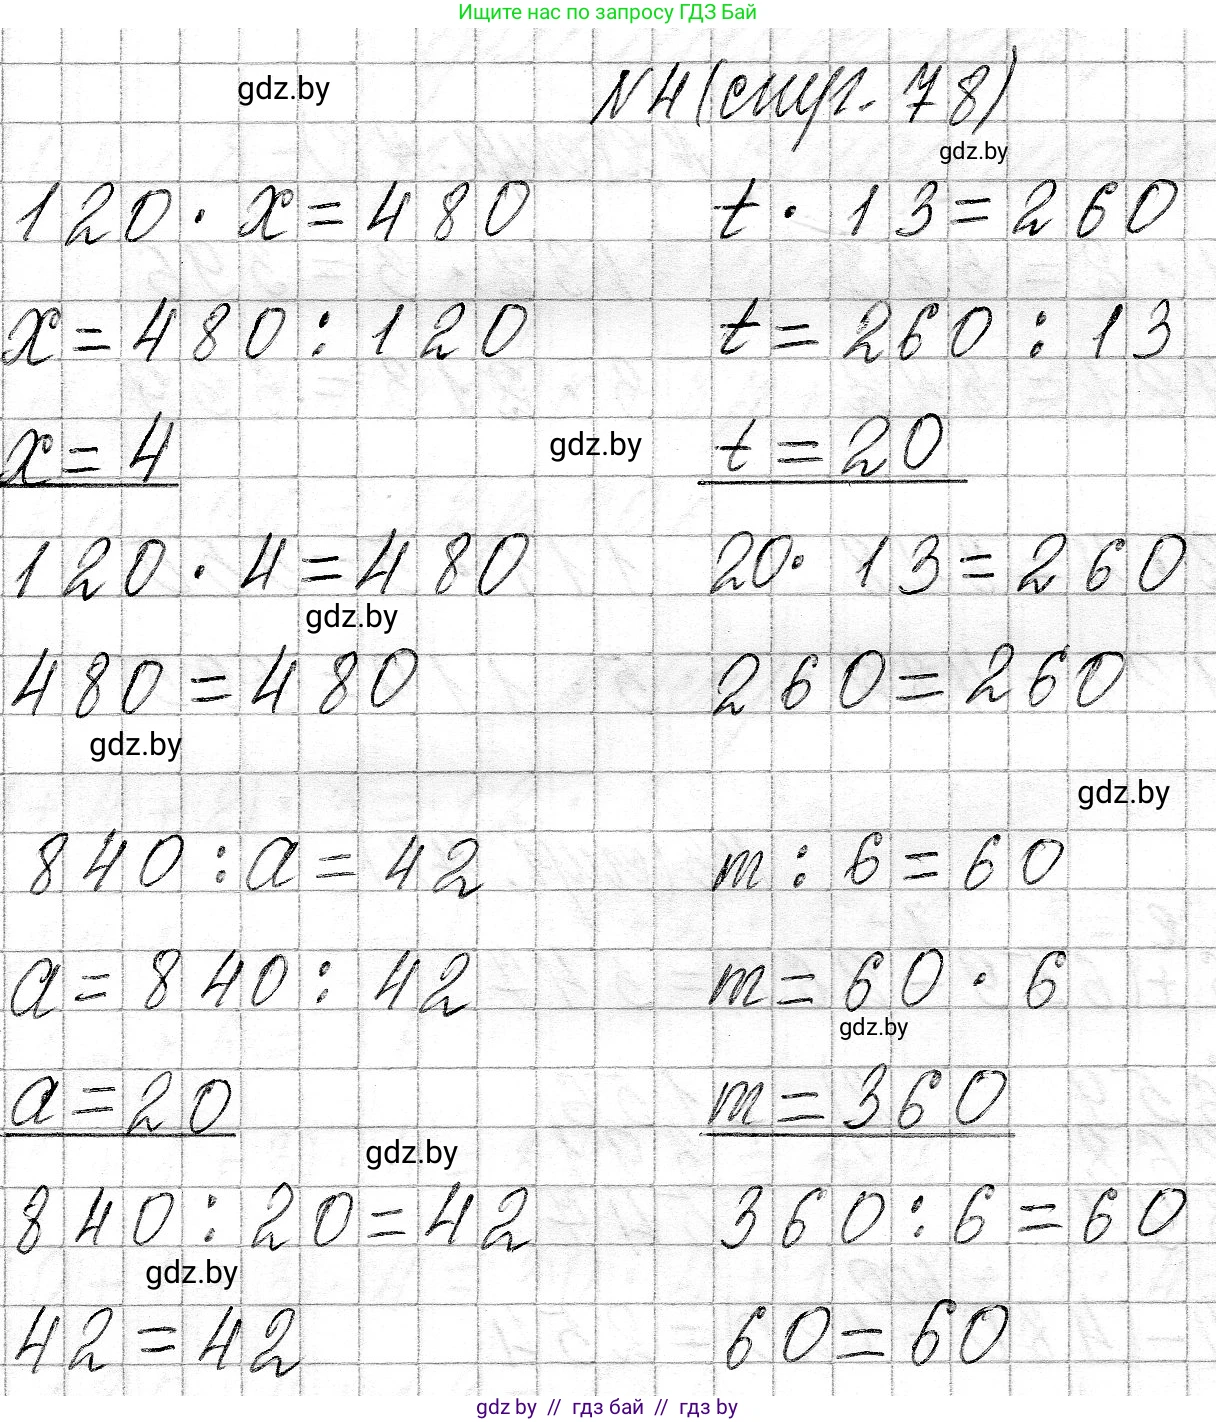 Ищите нас по запросу ГДЗ Бай
gdz.by
№4 (стр. 78)
gdz.by
120 · x = 480
t · 13 = 260
x = 480 : 120
t = 260 : 13
x = 4
gdz.by
t = 20
120 · 4 = 480
20 · 13 = 260
gdz.by
480 = 480
260 = 260
gdz.by
gdz.by
840 : a = 42
m : 6 = 60
a = 840 : 42
m = 60 · 6
gdz.by
a = 20
m = 360
gdz.by
840 : 20 = 42
360 : 6 = 60
gdz.by
42 = 42
60 = 60
gdz by // гдз бай // гдз by